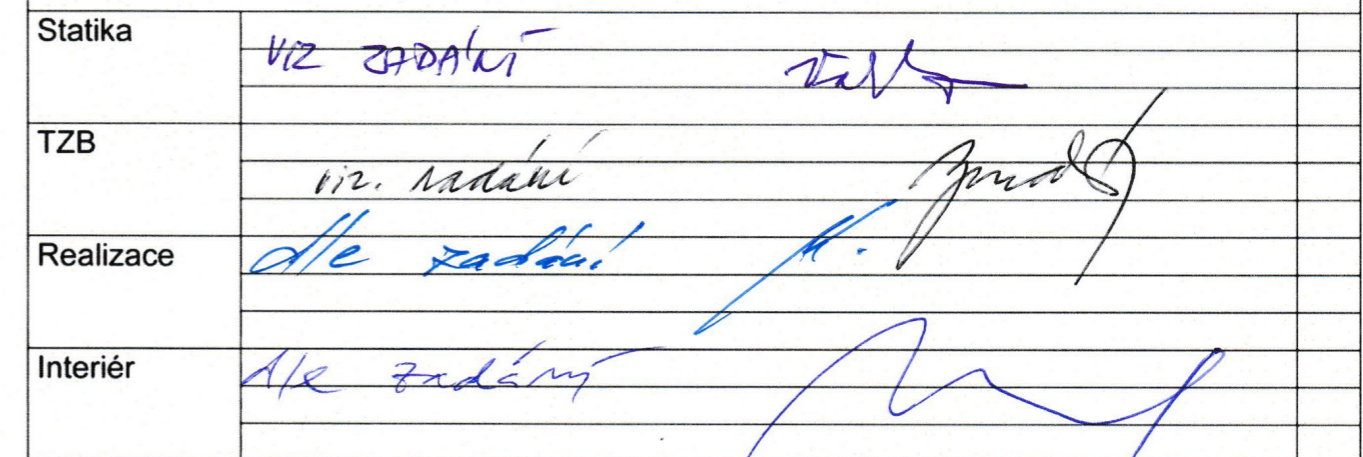 Statika VIZ ZADÁNÍ
TZB viz. zadání
Realizace dle zadání
Interiér dle zadání